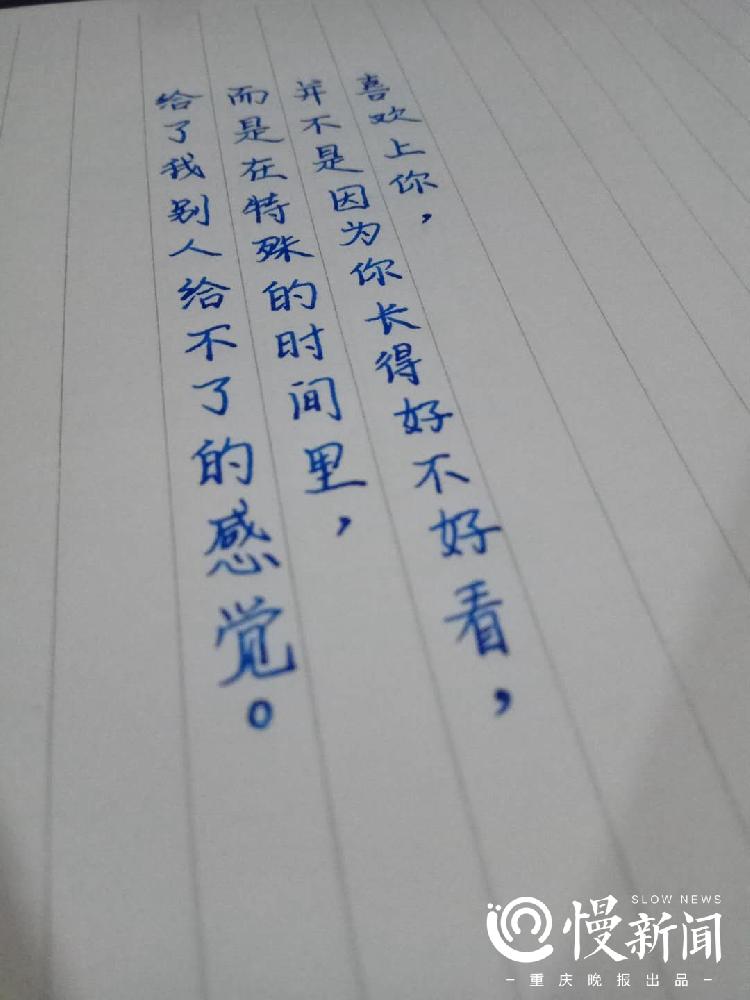 喜欢上你，
并不是因为你长得好不好看，
而是在特殊的时间里，
给了我别人给不了的感觉。
SLOW NEWS
慢新闻
-重庆晚报出品-